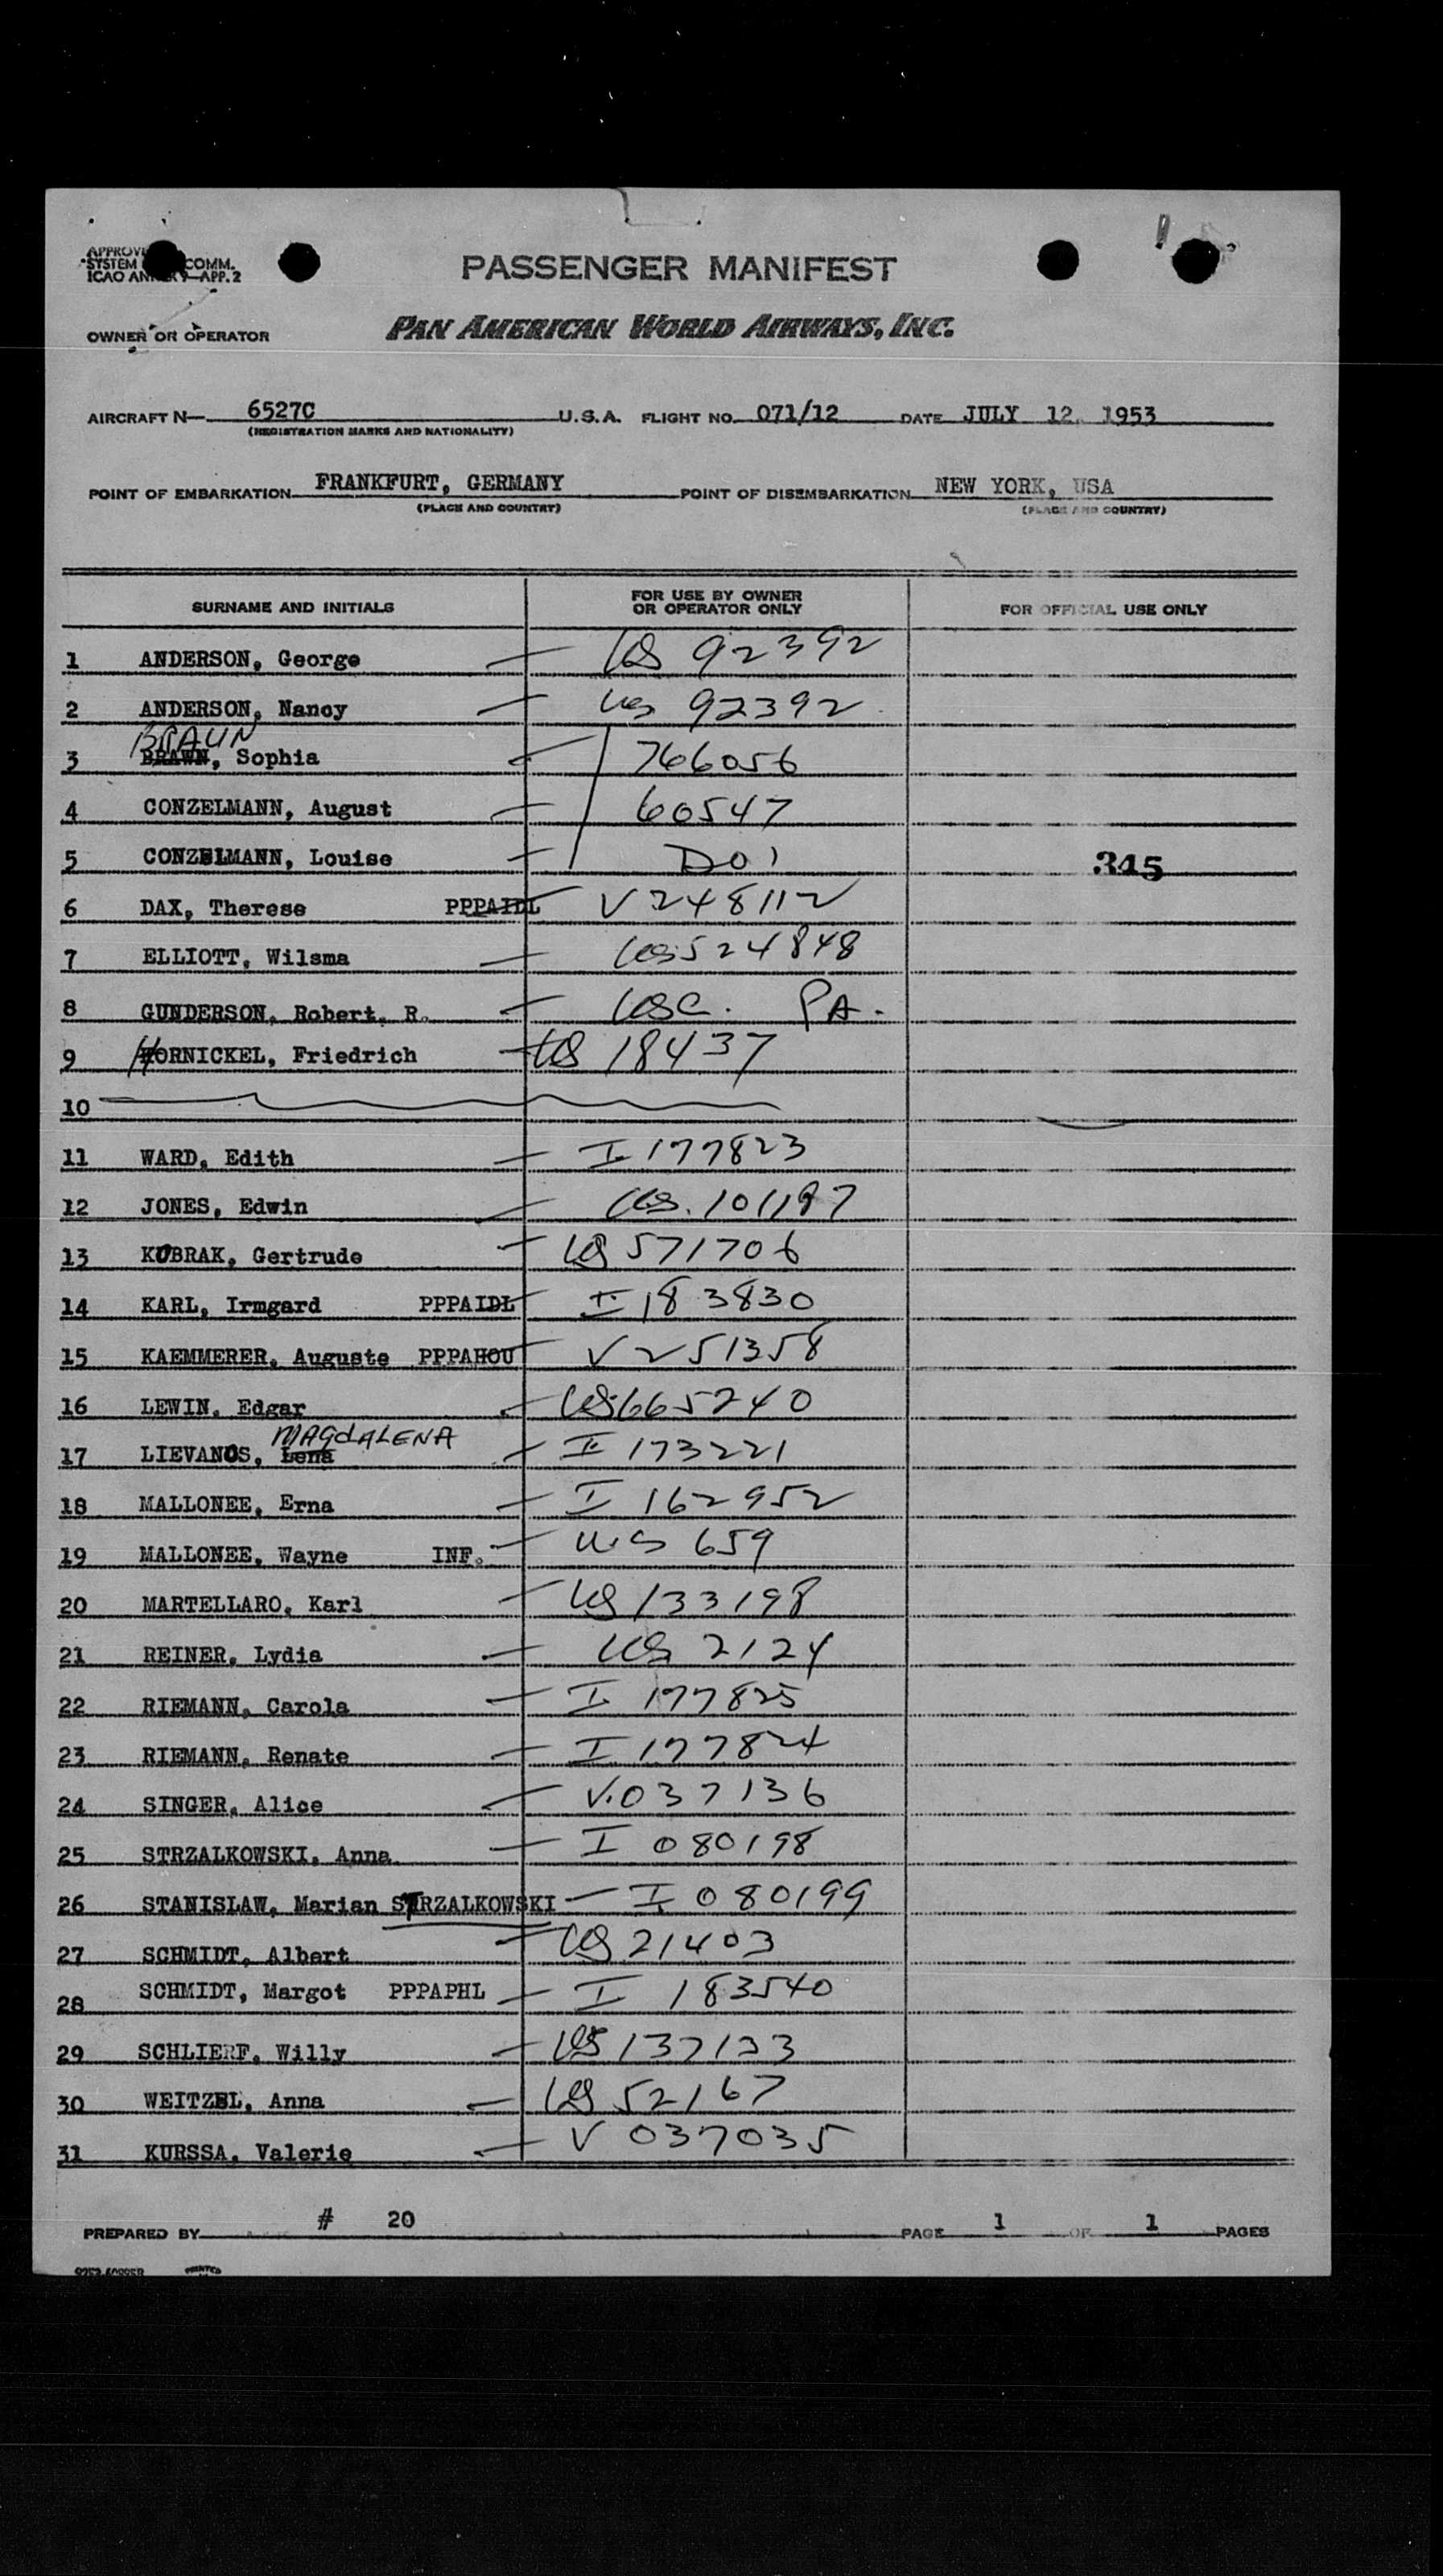 APPROV
SYSTEM COMM.
ICAO ANNEX 9—APP. 2
PASSENGER MANIFEST
OWNER OR OPERATOR PAN AMERICAN WORLD AIRWAYS, INC.
AIRCRAFT N— 6527C U.S.A. FLIGHT NO. 071/12 DATE JULY 12, 1953
(REGISTRATION MARKS AND NATIONALITY)
POINT OF EMBARKATION FRANKFURT, GERMANY POINT OF DISEMBARKATION NEW YORK, USA
(PLACE AND COUNTRY) (PLACE AND COUNTRY)
SURNAME AND INITIALS FOR USE BY OWNER OR OPERATOR ONLY FOR OFFICIAL USE ONLY
1 ANDERSON, George — US 92392
2 ANDERSON, Nancy — US 92392
BRAUN
3 BRAWN, Sophia 766056
4 CONZELMANN, August — 60547
5 CONZELMANN, Louise — Do 345
6 DAX, Therese PPPAIDL V 248112
7 ELLIOTT, Wilsma — US 524848
8 GUNDERSON, Robert R. — USC. PA.
9 HORNICKEL, Friedrich — US 18437
10
11 WARD, Edith — I 177823
12 JONES, Edwin — US. 101197
13 KOBRAK, Gertrude — US 571706
14 KARL, Irmgard PPPAIDL I 183830
15 KAEMMERER, Auguste PPPAHOU V 251358
16 LEWIN, Edgar — US 665240
MAGdALENA
17 LIEVANOS, Lena — I 173221
18 MALLONEE, Erna — I 162952
19 MALLONEE, Wayne INF. — U.S 659
20 MARTELLARO, Karl — US 133198
21 REINER, Lydia — US 2124
22 RIEMANN, Carola — I 177825
23 RIEMANN, Renate — I 177824
24 SINGER, Alice — V.037136
25 STRZALKOWSKI, Anna — I 080198
26 STANISLAW, Marian STRZALKOWSKI — I 080199
27 SCHMIDT, Albert — US 21403
28 SCHMIDT, Margot PPPAPHL — I 183540
29 SCHLIERF, Willy — US 137133
30 WEITZEL, Anna — US 52167
31 KURSSA, Valerie — V 037035
PREPARED BY # 20 PAGE 1 OF 1 PAGES